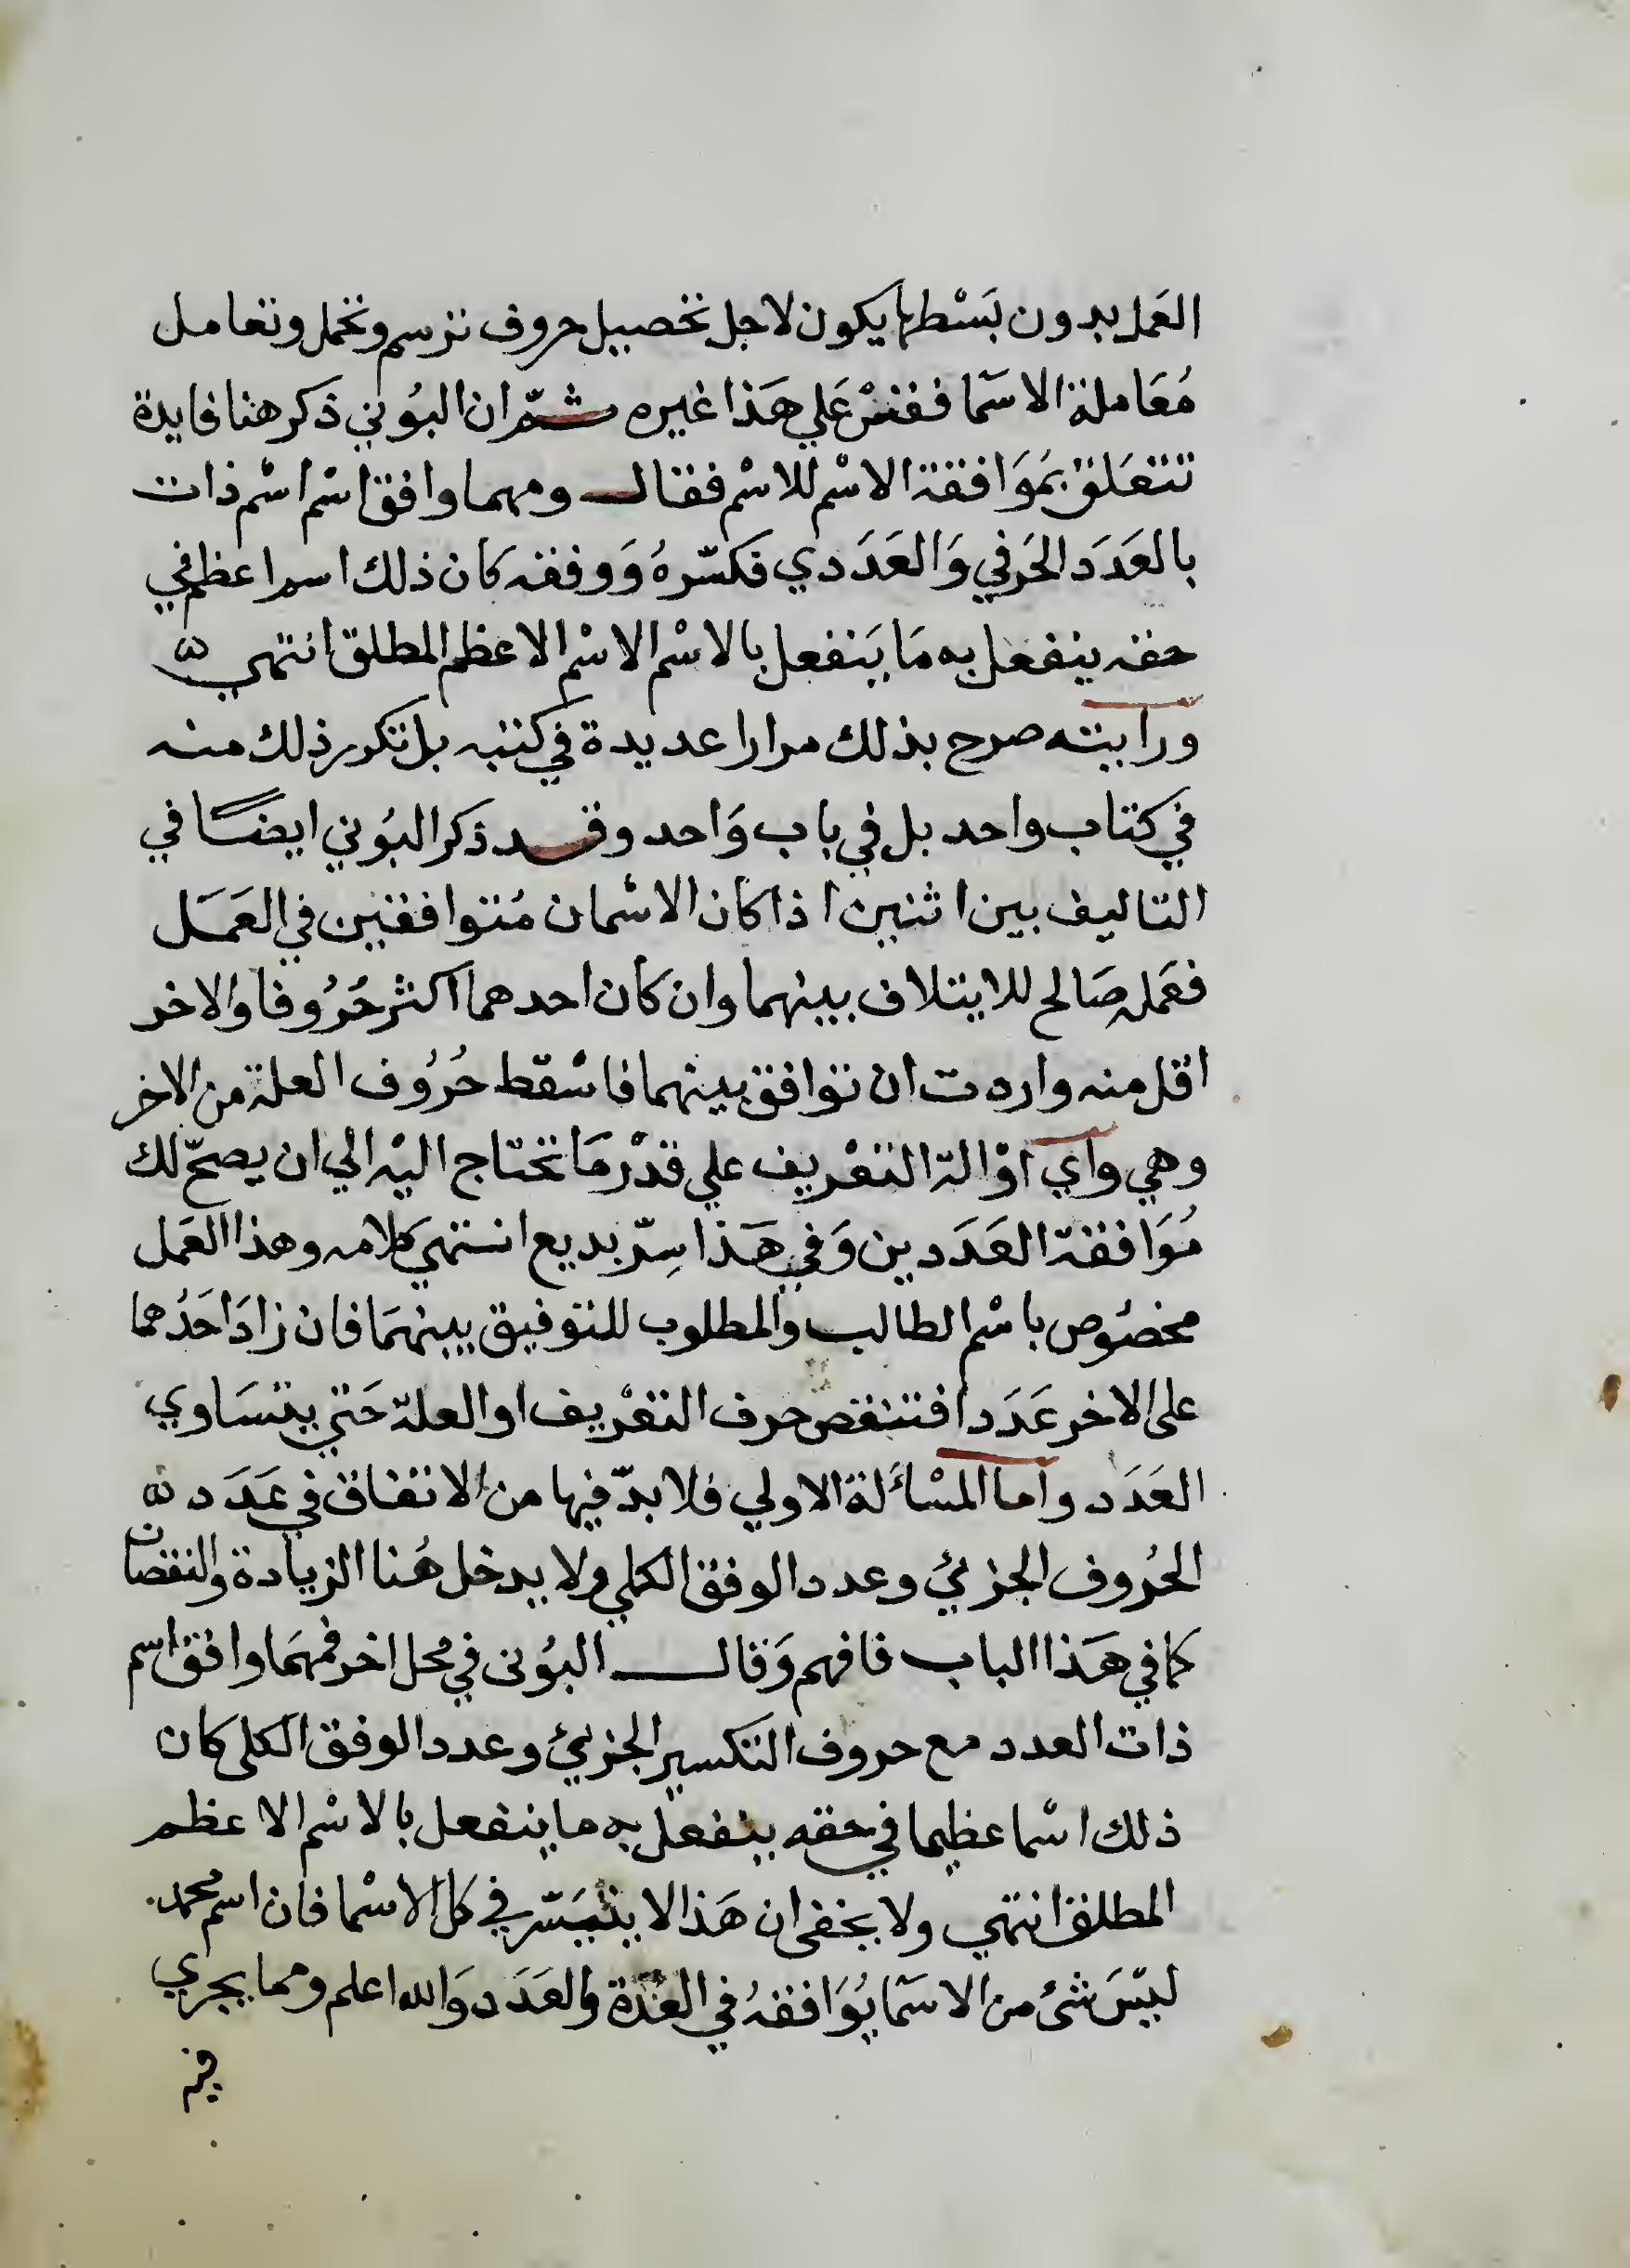 العَمل بدون بَسْطها يكون لاجل تحصيل حروف ترسم وتحمل وتعامل
مُعَاملة الاسَما فقسْ عَلي هَذا غيره ثمّ ان البُوني ذكر هنا فايدة
تتعَلق بمُوَافقة الاسْم للاسْم فقال ومهما وافق اسْم اسْم ذات
بالعَدَد الحَرفي وَالعَدَدي فكسّرهُ وَوفقه كان ذلك اسما اعظم في
حقه ينفعل به مَا يَنفعل بالاسْم الاسْم الاعظم المطلق انتهي
ورايته صرح بذلك مرارا عديدة في كتبه بل تكرر ذلك منه
في كتاب واحد بل في باب وَاحد وقد ذكر البُوني ايضًا في
التاليف بين اثنين اذا كان الاسْمان مُتوافقين في العَمَل
فعَمله صَالح للايتلاف بينهما وان كان احدهما اكثر حُرُوفا وَالاخر
اقل منه واردت ان توافق بينهما فاسْقط حُرُوف العلة من الاخر
وهي واي اوْ الة التعْريف علي قدْر مَا تحتاج اليْه الي ان يصحّ لك
مُوَافقة العَدَدين وَفي هَذا سِرّ بديع انتهي كلامه وهذا العَمل
مخصُوص باسْم الطالب وَالمطلوب للتوفيق بينهمَا فان زادَ احَدُهما
على الاخر عَدَدا فتنقص حرف التعْريف او العلة حَتي يتسَاوي
العَدَد واما المسْأَلة الاولي فلا بدّ فيها من الاتفاق في عَدَد
الحُروف الجزئي وعدد الوفق الكلي ولا يدخل هُنا الزيادة والنقصان
كما في هَذا الباب فافهم وَقال البُونى في محل اخر فمهمَا وافق اسم
ذات العدد مع حروف التكسير الجزئي وعدد الوفق الكلى كان
ذلك اسْما عظيما في حقه ينفعل به ما ينفعل بالاسْم الاعظم
المطلق انتهي ولا يخفى ان هَذا لا يتيَسّر في كل الاسْما فان اسم محمد
ليْسَ شئ من الاسَما يُوَافقهُ في العُدّة وَالعَدَد وَالله اعلم ومما يجري
فيه